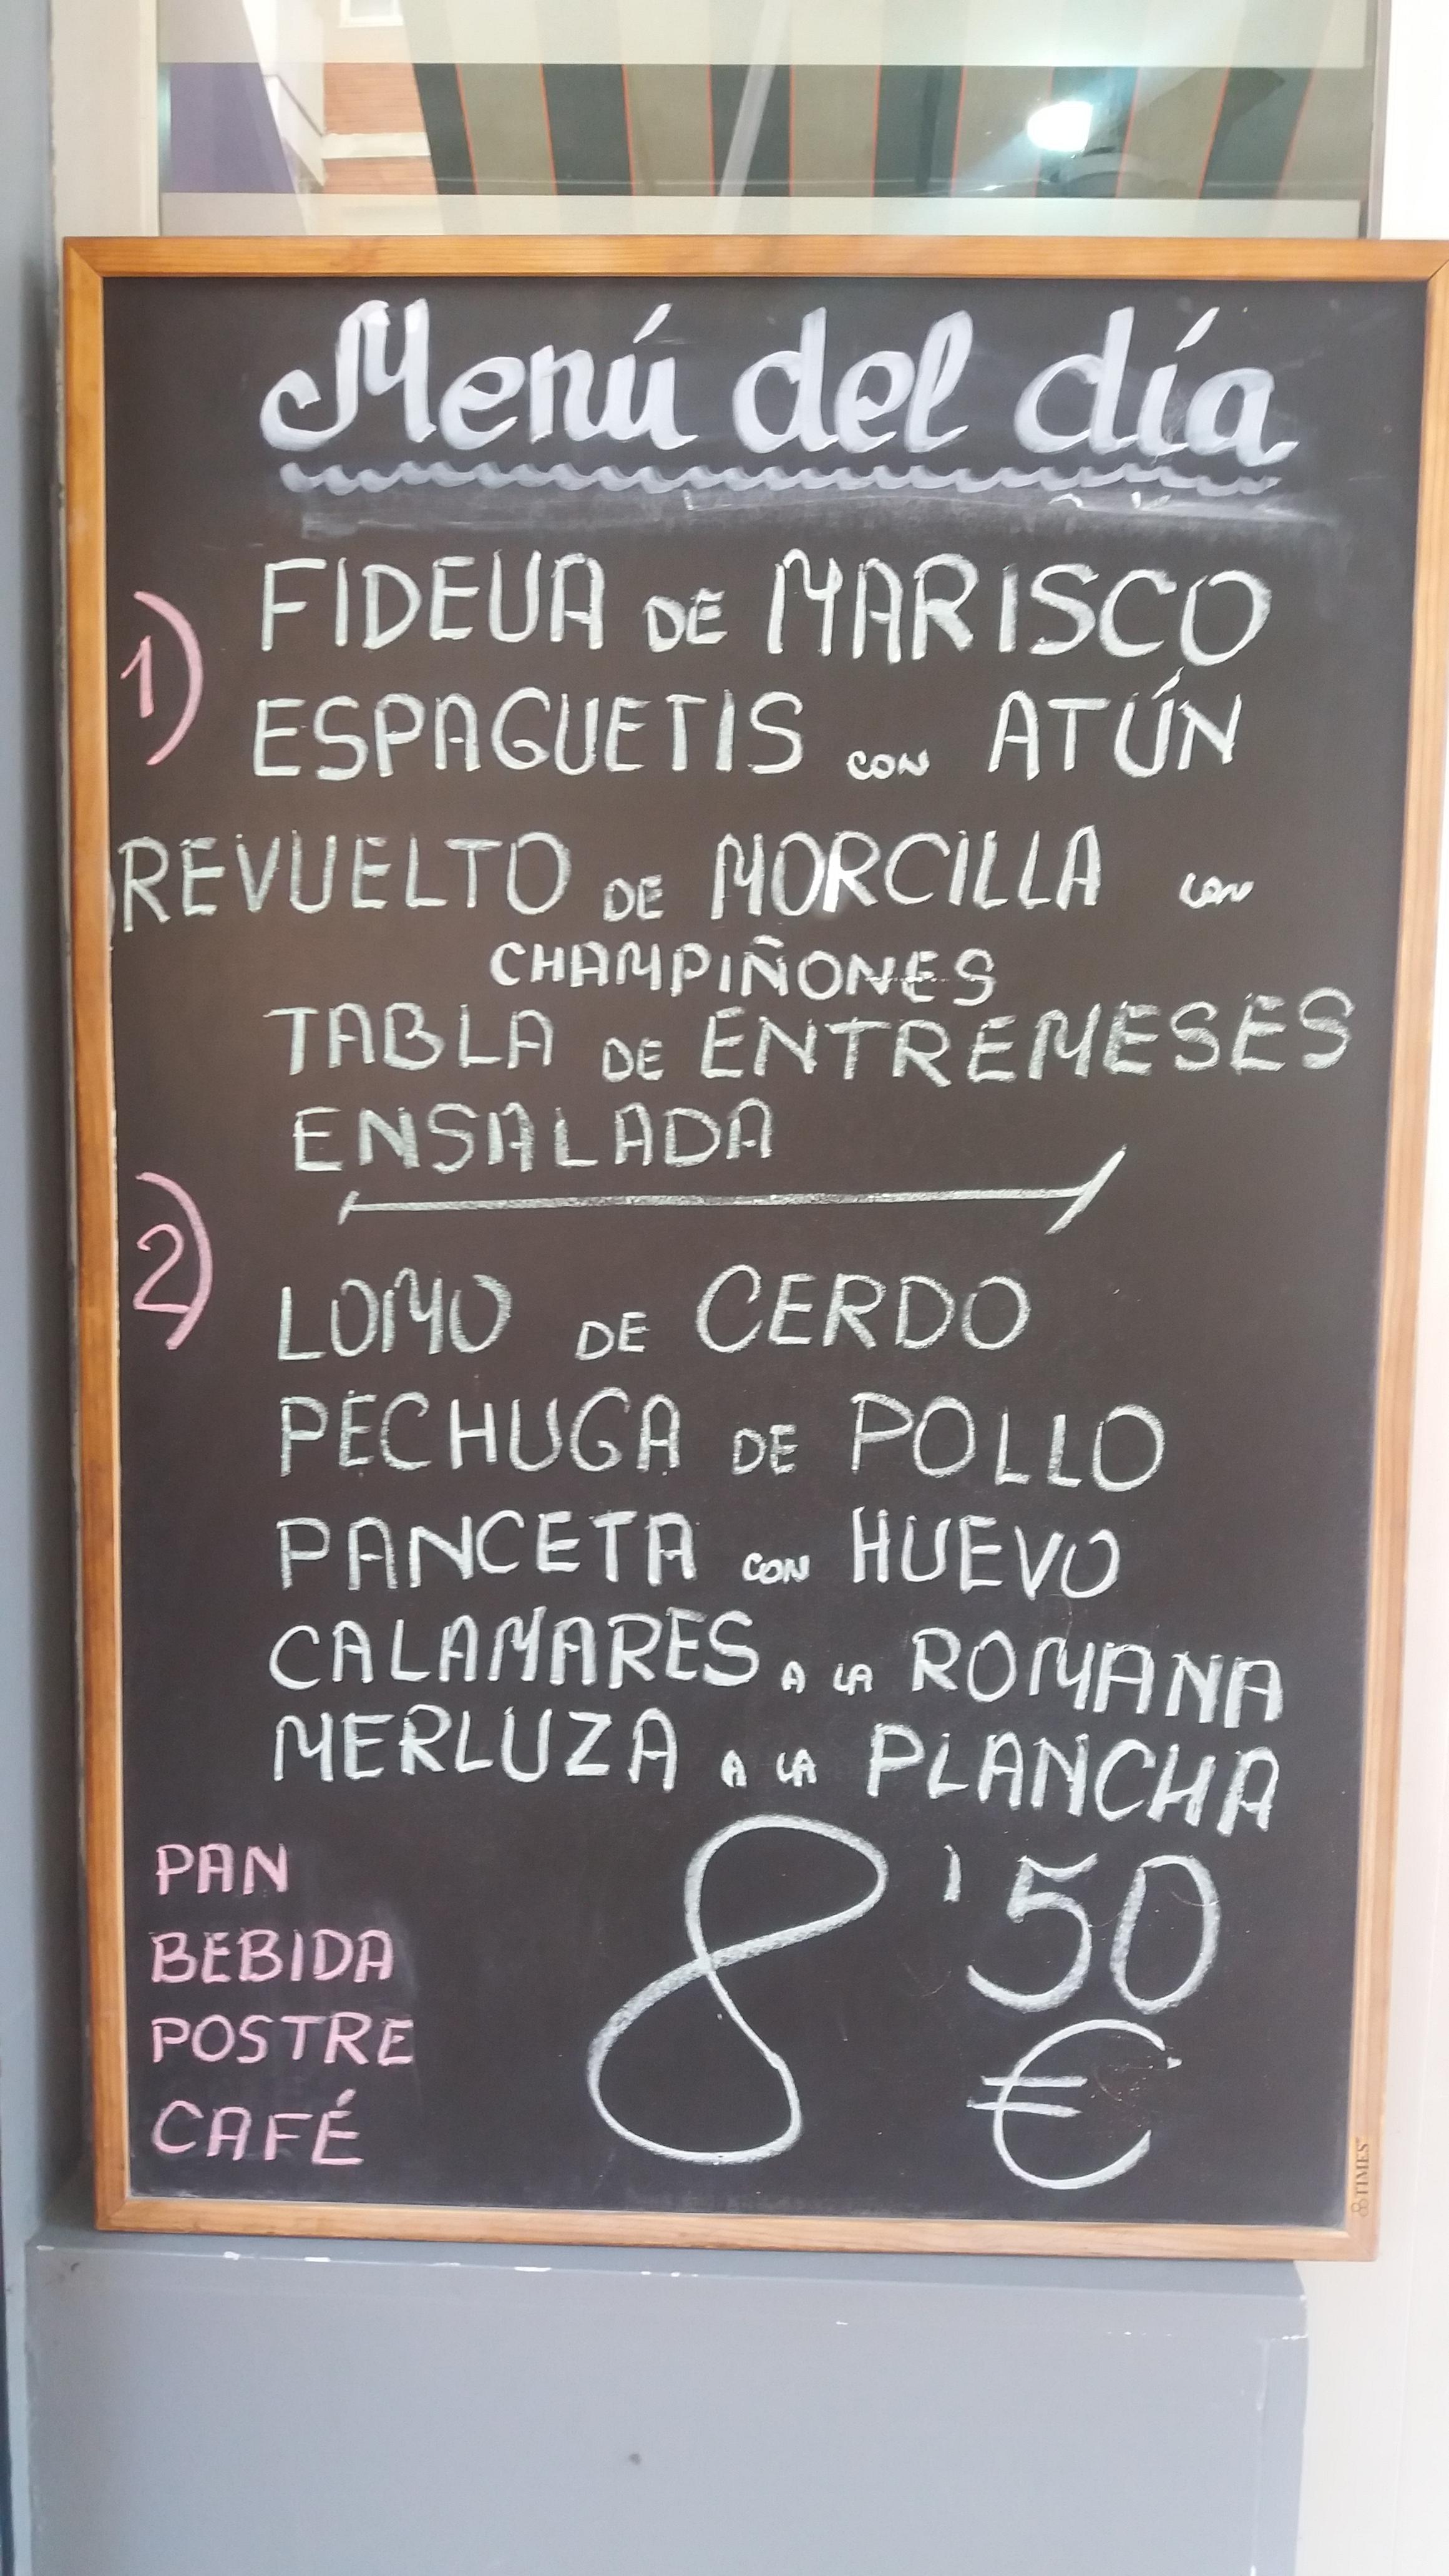 Menú del día
1)
FIDEUA DE MARISCO
ESPAGUETIS CON ATÚN
REVUELTO DE MORCILLA con
CHAMPIÑONES
TABLA DE ENTREMESES
ENSALADA
2)
LOMO DE CERDO
PECHUGA DE POLLO
PANCETA CON HUEVO
CALAMARES A LA ROMANA
MERLUZA A LA PLANCHA
PAN
BEBIDA
POSTRE
CAFÉ
8'50
€
TIMES